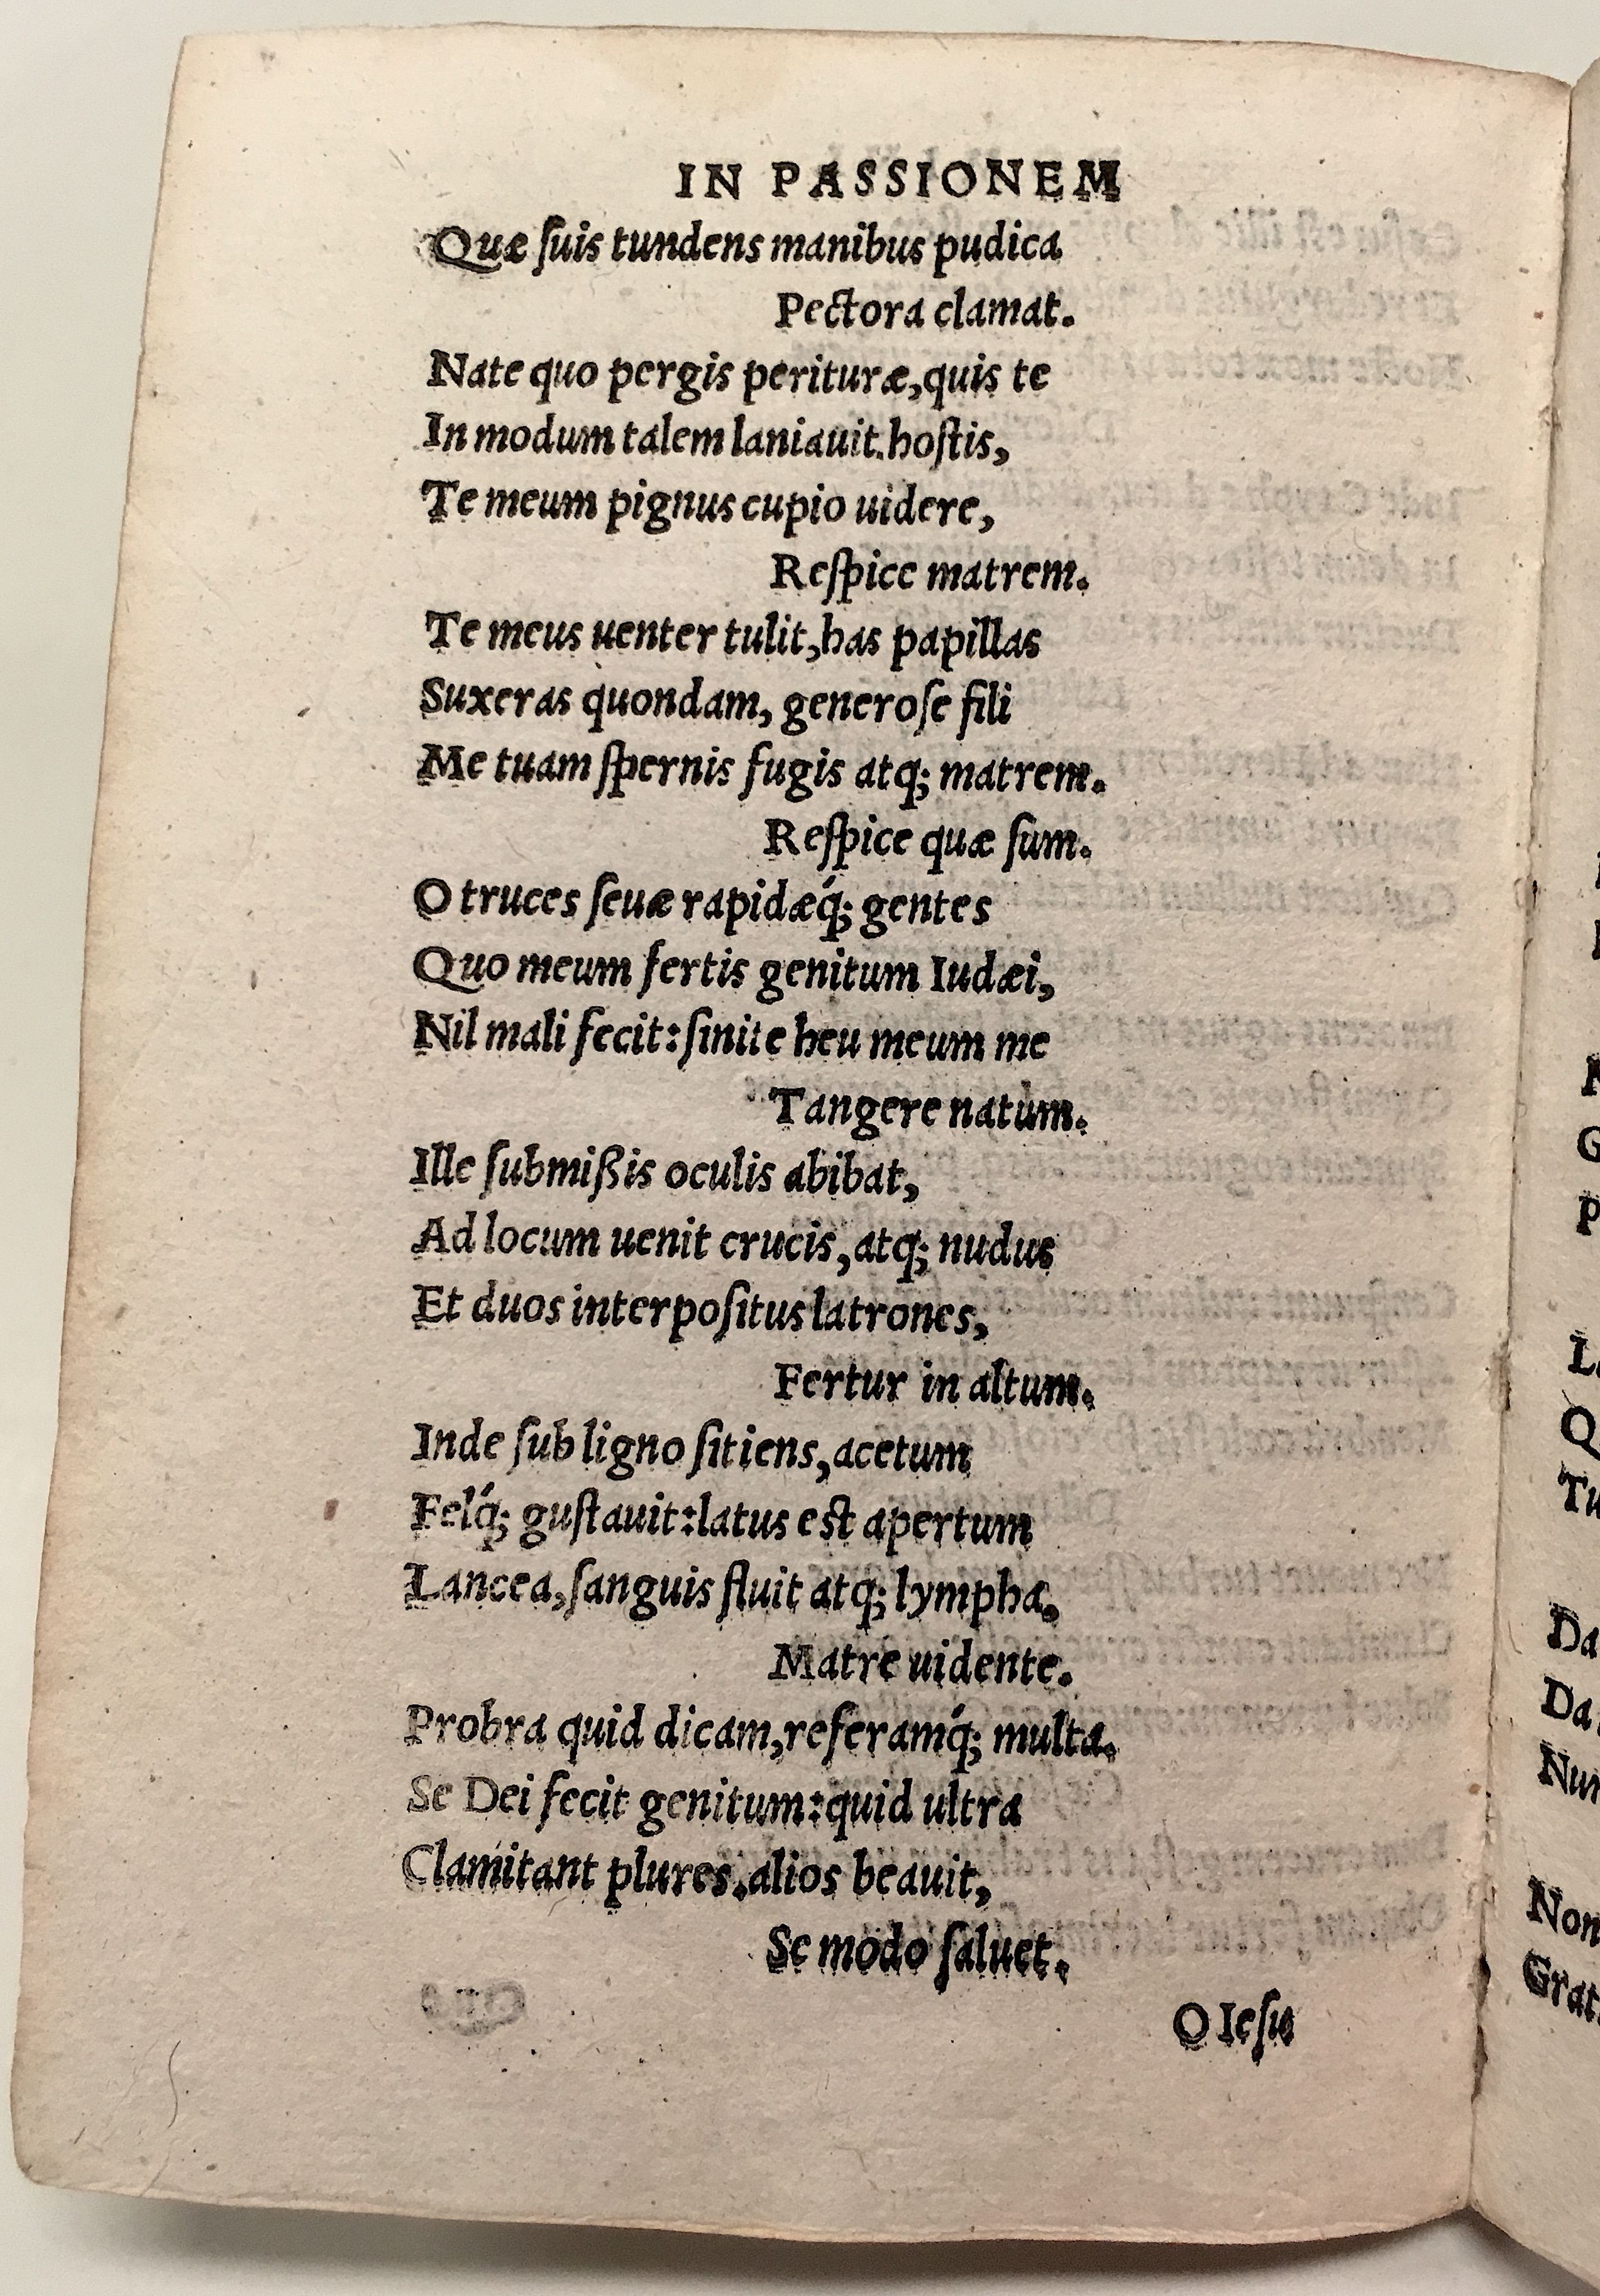 IN PASSIONEM
Quæ ſuis tundens manibus pudica
Pectora clamat.
Nate quo pergis perituræ, quis te
In modum talem laniauit. hoſtis,
Te meum pignus cupio uidere,
Reſpice matrem.
Te meus uenter tulit, has papillas
Suxeras quondam, generoſe fili
Me tuam ſpernis fugis atq; matrem.
Reſpice quæ ſum.
O truces ſeuæ rapidæq́; gentes
Quo meum fertis genitum Iudæi,
Nil mali fecit: ſinite heu meum me
Tangere natum.
Ille ſubmißis oculis abibat,
Ad locum uenit crucis, atq; nudus
Et duos interpoſitus latrones,
Fertur in altum.
Inde ſub ligno ſitiens, acetum
Felq́; guſtauit: latus est apertum
Lancea, ſanguis fluit atq; lympha.
Matre uidente.
Probra quid dicam, referamq́; multa.
Se Dei fecit genitum: quid ultra
Clamitant plures. alios beauit,
Se modo ſaluet.
O Ieſu